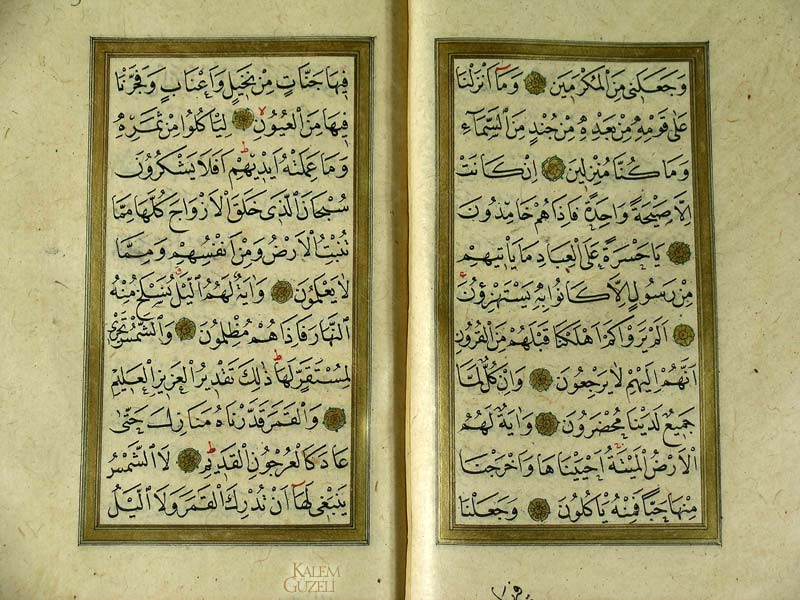 وَجَعَلَنِي مِنَ الْمُكْرَمِينَ وَمَآ اَنْزَلْنَا
عَلٰى قَوْمِهٖ مِنْ بَعْدِهٖ مِنْ جُنْدٍ مِنَ السَّمَآءِ
وَمَا كُنَّا مُنْزِلِينَ اِنْ كَانَتْ
اِلَّا صَيْحَةً وَاحِدَةً فَاِذَا هُمْ خَامِدُونَ
يَا حَسْرَةً عَلَى الْعِبَادِ مَا يَأْتِيهِمْ
مِنْ رَسُولٍ اِلَّا كَانُوا بِهٖ يَسْتَهْزِؤُنَ
اَلَمْ يَرَوْا كَمْ اَهْلَكْنَا قَبْلَهُمْ مِنَ الْقُرُونِ
اَنَّهُمْ اِلَيْهِمْ لَا يَرْجِعُونَ وَاِنْ كُلٌّ لَمَّا
جَمِيعٌ لَدَيْنَا مُحْضَرُونَ وَاٰيَةٌ لَهُمُ
الْاَرْضُ الْمَيْتَةُ اَحْيَيْنَاهَا وَاَخْرَجْنَا
مِنْهَا حَبًّا فَمِنْهُ يَأْكُلُونَ وَجَعَلْنَا
فِيهَا جَنَّاتٍ مِنْ نَخِيلٍ وَاَعْنَابٍ وَفَجَّرْنَا
فِيهَا مِنَ الْعُيُونِ لِيَأْكُلُوا مِنْ ثَمَرِهٖ
وَمَا عَمِلَتْهُ اَيْدِيهِمْ اَفَلَا يَشْكُرُونَ
سُبْحَانَ الَّذِي خَلَقَ الْاَزْوَاجَ كُلَّهَا مِمَّا
تُنْبِتُ الْاَرْضُ وَمِنْ اَنْفُسِهِمْ وَمِمَّا
لَا يَعْلَمُونَ وَاٰيَةٌ لَهُمُ الَّيْلُ نَسْلَخُ مِنْهُ
النَّهَارَ فَاِذَا هُمْ مُظْلِمُونَ وَالشَّمْسُ تَجْرِي
لِمُسْتَقَرٍّ لَهَا ذٰلِكَ تَقْدِيرُ الْعَزِيزِ الْعَلِيمِ
وَالْقَمَرَ قَدَّرْنَاهُ مَنَازِلَ حَتّٰى
عَادَ كَالْعُرْجُونِ الْقَدِيمِ لَا الشَّمْسُ
يَنْبَغِي لَهَآ اَنْ تُدْرِكَ الْقَمَرَ وَلَا الَّيْلُ
KALEM
GÜZELİ